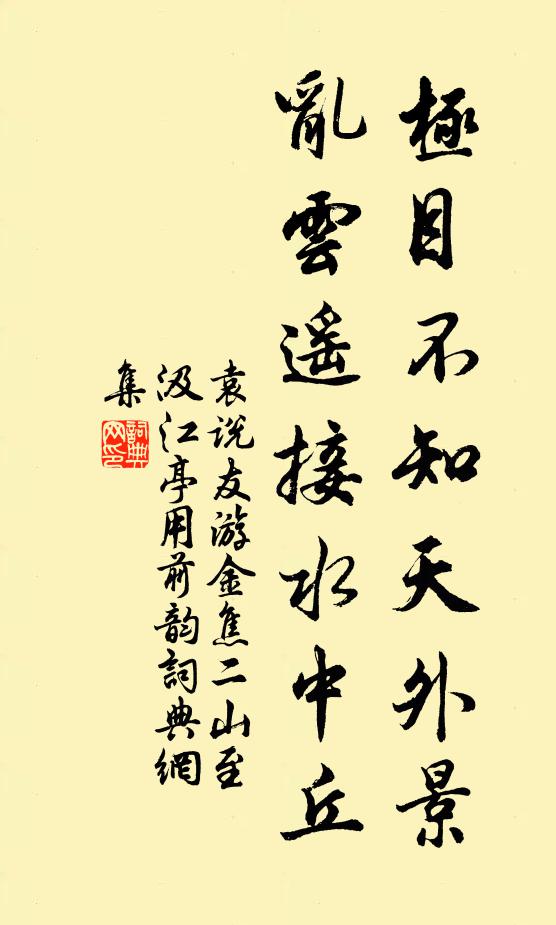 極目不知天外景
亂雲遥接水中丘
袁説友游金焦二山至
汲江亭用前韵詞典網
集
詞典网印